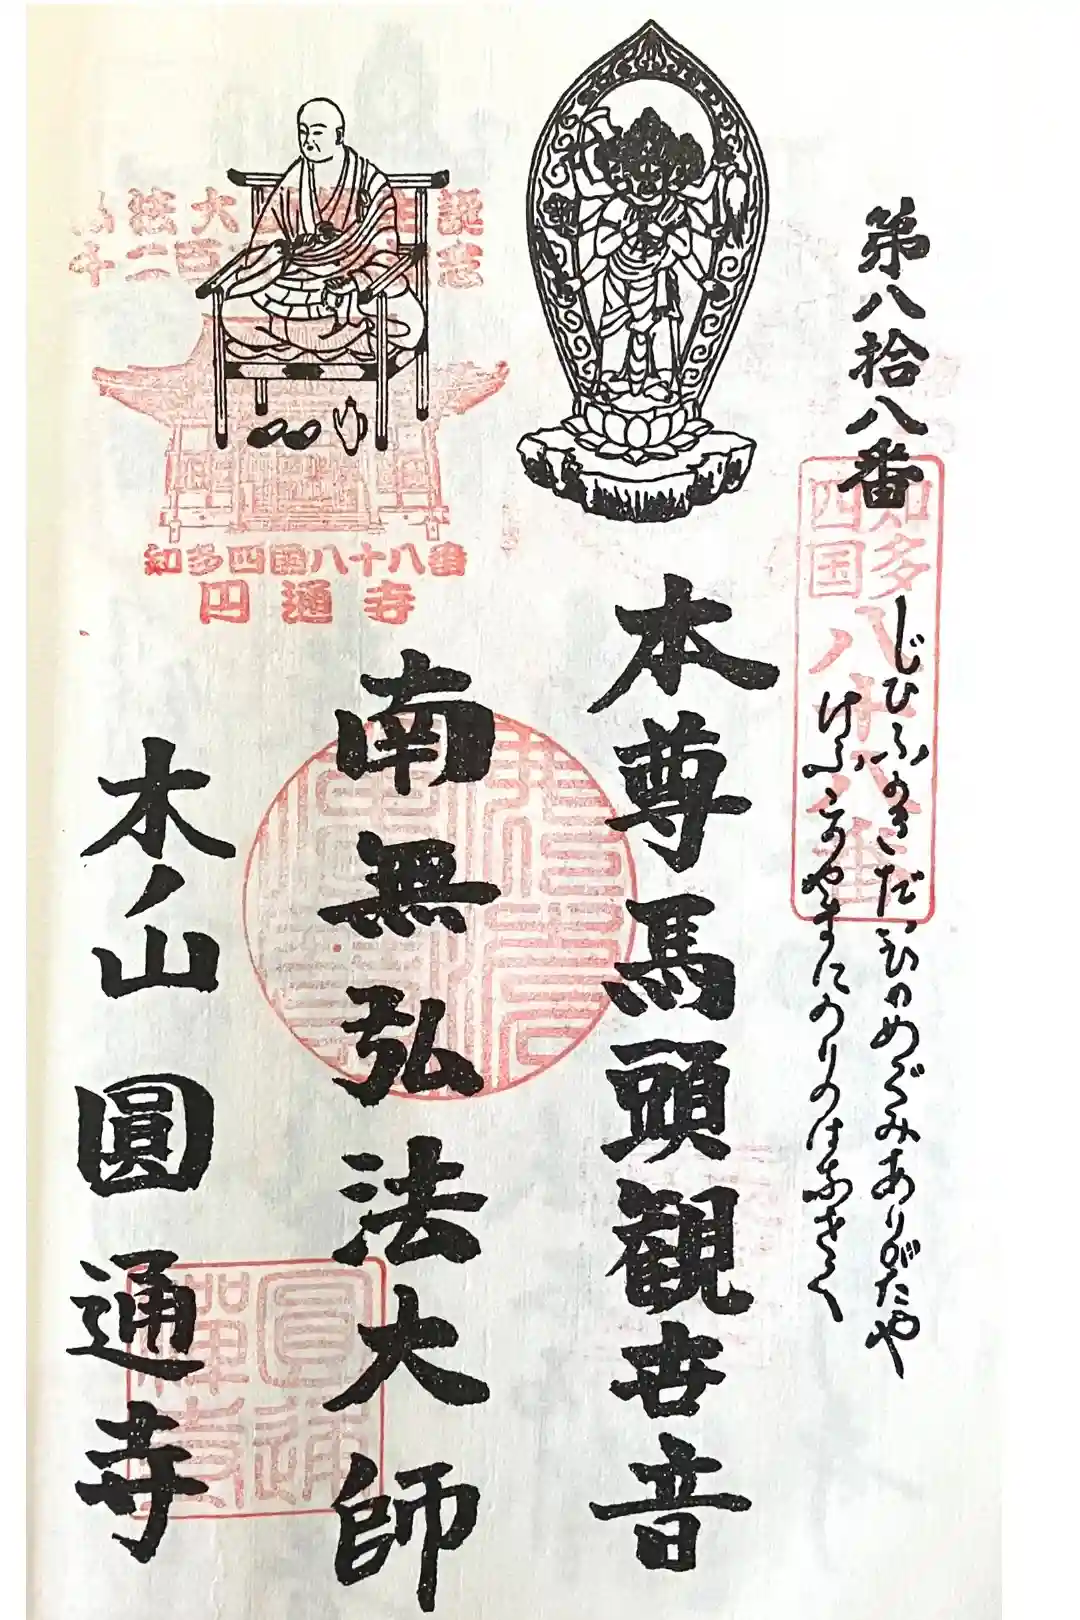 第八拾八番
じひふかきだいひのめぐみありがたや
けふこのやまにのりのはなさく
知多
四国
八十八番
本尊馬頭観世音
南無弘法大師
木ノ山 圓通寺
誕生
大法
記念
百二十
知多四国八十八番
円通寺
圓通
禅寺